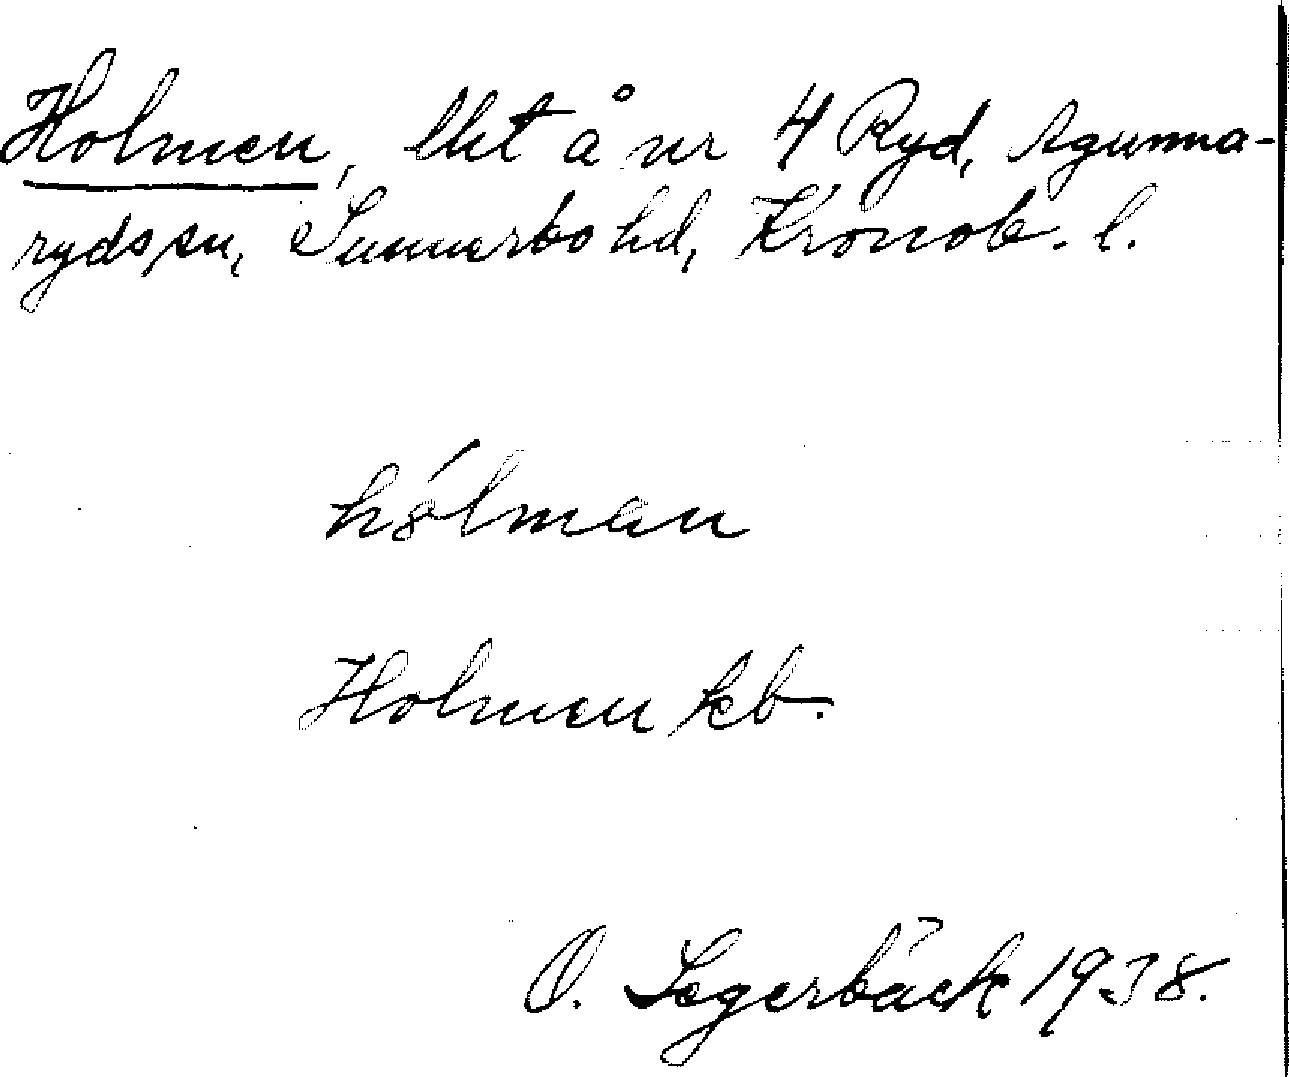 Holmen, lht å nr 4 Ryd, Agunna-
rydssn, Sunnerbo hd, Kronob. l.
hólman
Holmen kb.
O. Segerbäck 1938.